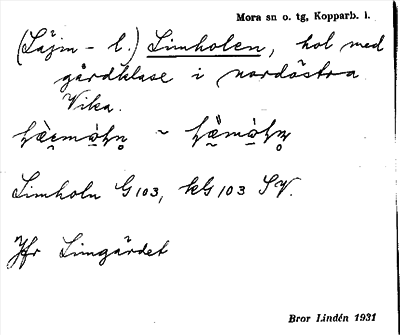 Mora sn o. tg, Kopparb. l.
(Läjm - l.) Limholen, hol med
gårdklase i nordöstra
Vika.
~
Limholn G 103, kG 103 SV.
Jfr Limgärdet
Bror Lindén 1931